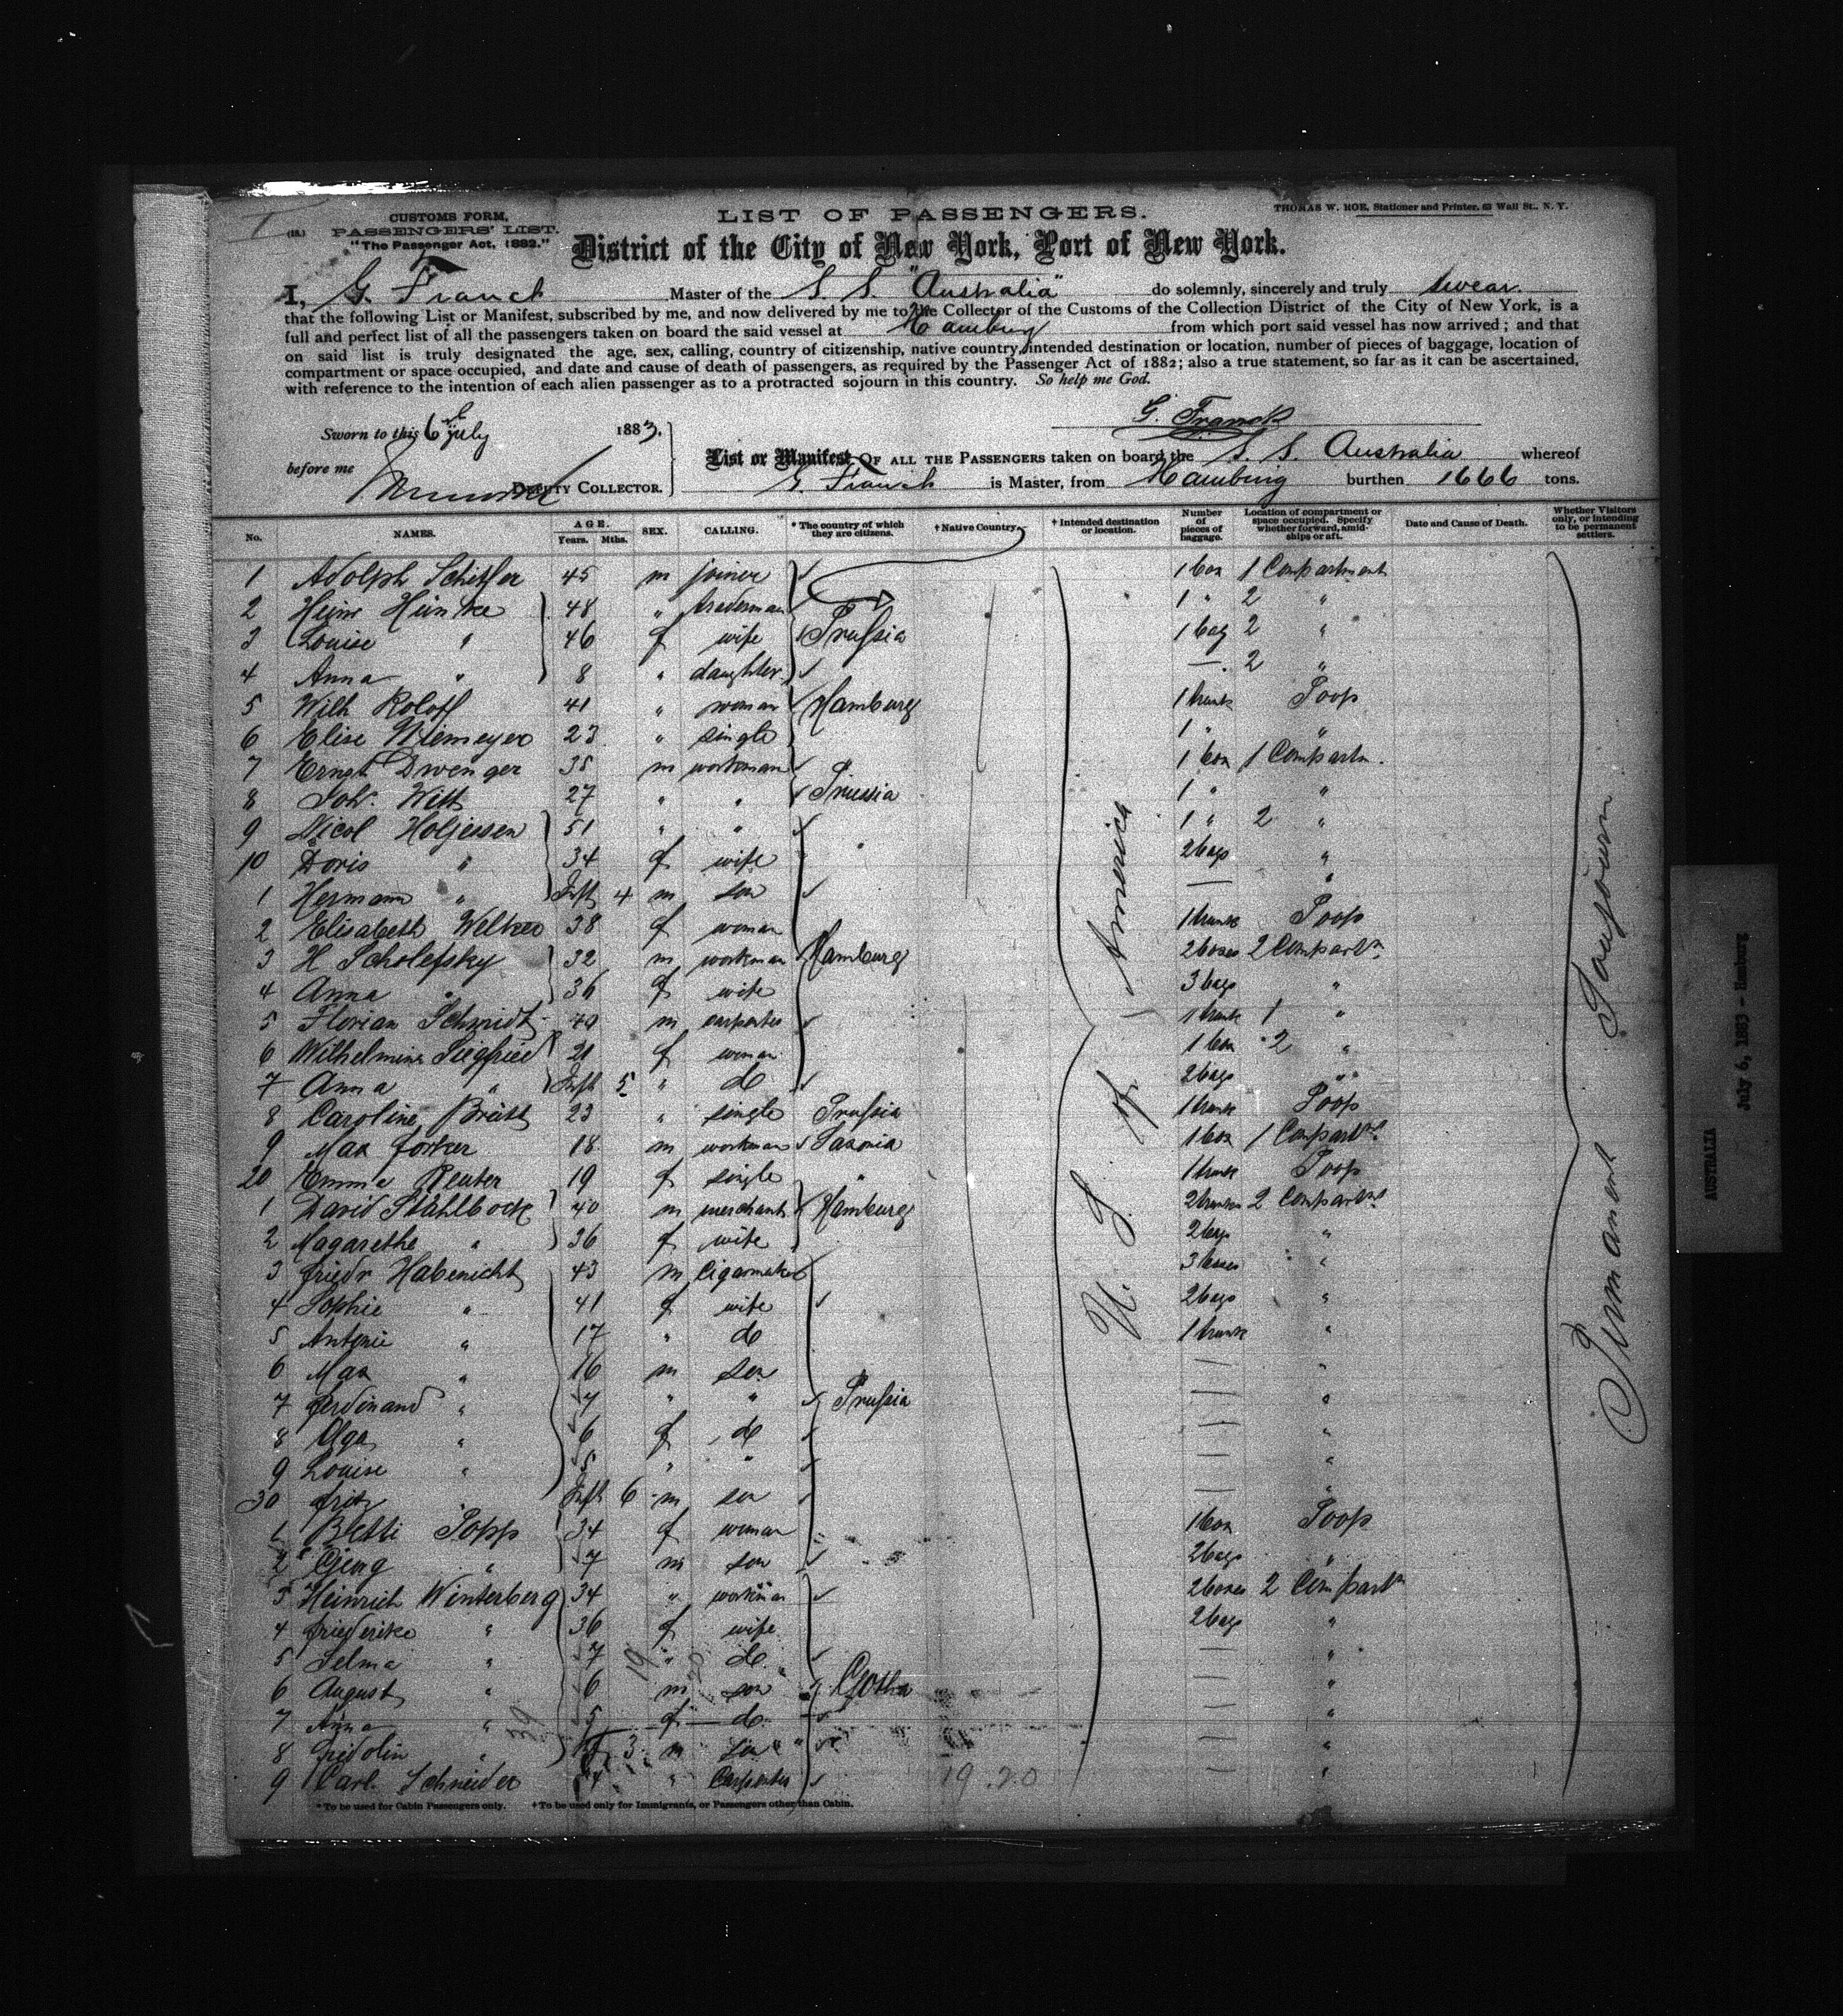 CUSTOMS FORM,
(18.) PASSENGERS' LIST.
"The Passenger Act, 1882."
LIST OF PASSENGERS.
THOMAS W. ROE, Stationer and Printer, 63 Wall St., N. Y.
District of the City of New York, Port of New York.
I, G. Franck Master of the S. S. "Australia" do solemnly, sincerely and truly swear.
that the following List or Manifest, subscribed by me, and now delivered by me to the Collector of the Customs of the Collection District of the City of New York, is a
full and perfect list of all the passengers taken on board the said vessel at Hamburg from which port said vessel has now arrived; and that
on said list is truly designated the age, sex, calling, country of citizenship, native country, intended destination or location, number of pieces of baggage, location of
compartment or space occupied, and date and cause of death of passengers, as required by the Passenger Act of 1882; also a true statement, so far as it can be ascertained,
with reference to the intention of each alien passenger as to a protracted sojourn in this country. So help me God.
G. Franck
Sworn to this 6th July 1883,
before me
DEPUTY COLLECTOR.
List or Manifest OF ALL THE PASSENGERS taken on board the S. S. Australia whereof
G. Franck is Master, from Hamburg burthen 1666 tons.
No. NAMES. AGE. Years. Mths. SEX. CALLING. * The country of which they are citizens. † Native Country. † Intended destination or location. Number of pieces of baggage. Location of compartment or space occupied. Specify whether forward, amidships or aft. Date and Cause of Death. Whether Visitors only, or intending to be permanent settlers.
1 Adolph 45 m joiner 1 box 1 Compartment
2 Heinr Heinke 48 " tradesman 1 " 2 "
3 Louise " 46 f wife Prussia 1 bag 2 "
4 Anna " 8 " daughter —. 2 "
5 Wilh. Roloff 41 " woman Hamburg 1 trunk Poop
6 Elise Niemeyer 23 " single 1 " "
7 Ernst Dwenger 35 m workman 1 box 1 Compartm.
8 Joh. Witt 27 " " Prussia 1 " "
9 Nicol Holjessen 51 " " 1 " 2 "
10 Doris " 34 f wife 2 bags "
1 Hermann " Inft 4 m son — "
2 Elisabeth Welker 38 f woman 1 trunk Poop
3 H Scholefsky 32 m workman Hamburg 2 boxes 2 Compartm
4 Anna " 36 f wife 3 bags "
5 Florian Schmidt 40 m carpenter 1 trunk 1 "
6 Wilhelmine Siegfried 21 f woman 1 box 2 "
7 Anna " Inft 5 " do 2 bags "
8 Caroline 23 " single Prussia 1 trunk Poop
9 Max Forker 18 m workman Saxonia 1 box 1 Compartm
20 Emma Reuter 19 f single " 1 trunk Poop
1 David Stahlbock 40 m merchant Hamburg 2 trunks 2 Compartm
2 Magarethe " 36 f wife 2 bags "
3 Friedr Habenicht 43 m Cigarmaker 3 boxes "
4 Sophie " 41 f wife 2 bags "
5 Antonie " 17 " do 1 trunk "
6 Max " 16 m son — "
7 Ferdinand " 7 " " Prussia — "
8 Olga " 6 f do — "
9 Louise " 5 " " — "
30 Fritz Inft 6 m son — "
1 Betti Popp 34 f woman 1 box Poop
2 Georg " 7 m son 2 bags "
3 Heinrich Winterberg 34 " workman 2 boxes 2 Compartm
4 Friederike " 36 f wife 2 bags "
5 Selma " 7 " do — "
6 August " 6 m son Gotha — "
7 Anna " 5 f do — "
8 Fridolin " 3 m son — "
9 Carl Schneider " Carpenter — "
U. S. of America
Permanent Sojourn
19 20
39
* To be used for Cabin Passengers only. † To be used only for Immigrants, or Passengers other than Cabin.
AUSTRALIA
July 6, 1883 – Hamburg